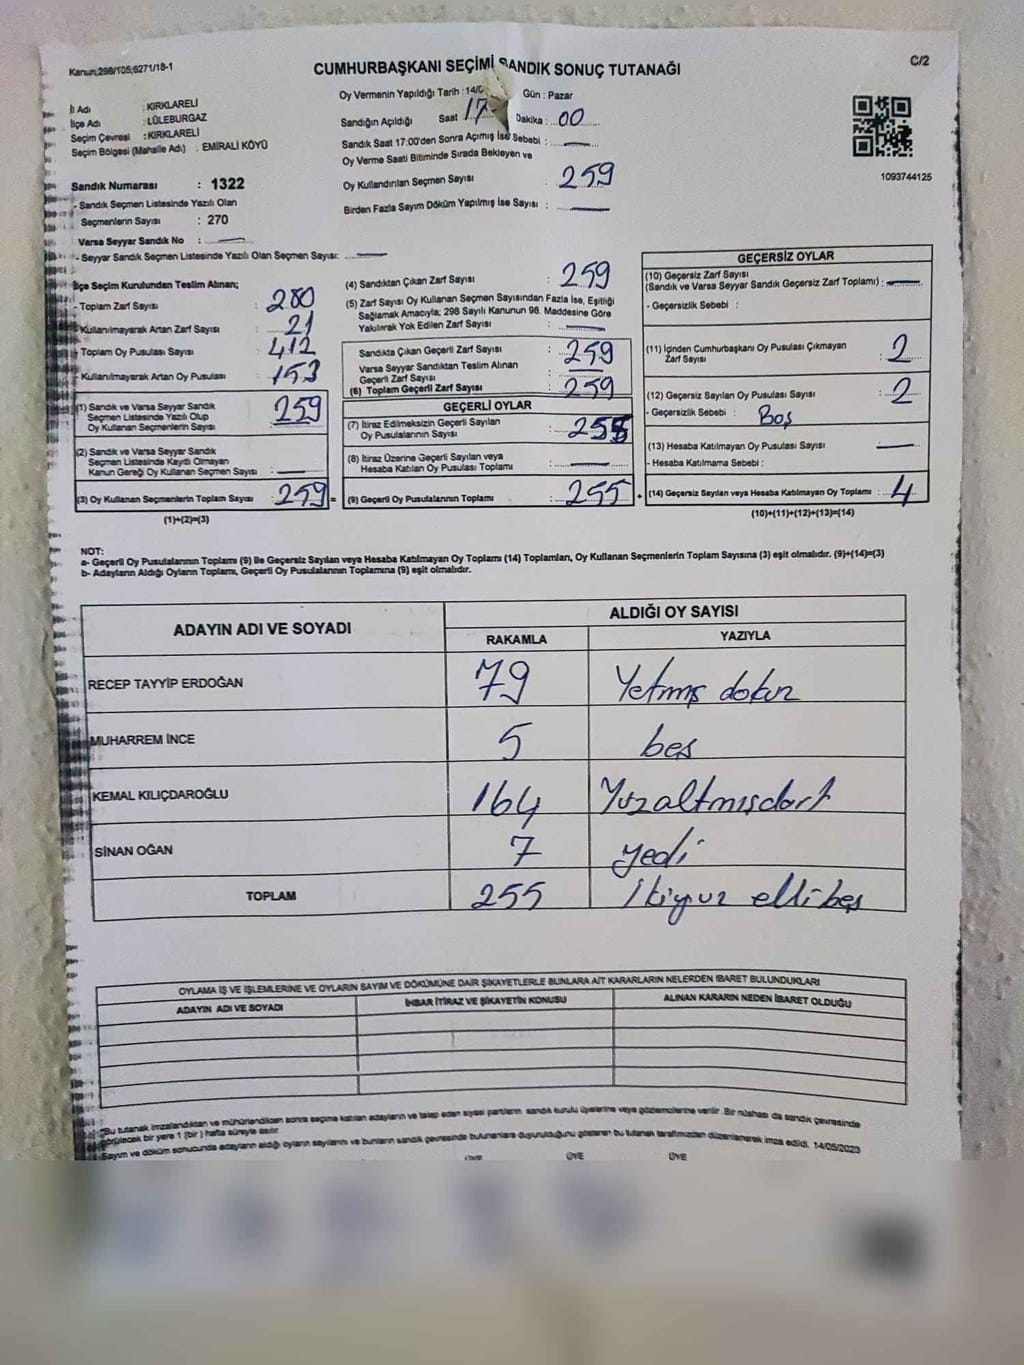 Kanun;298/105;6271/18-1
C/2
CUMHURBAŞKANI SEÇİMİ SANDIK SONUÇ TUTANAĞI
İl Adı : KIRKLARELİ
İlçe Adı : LÜLEBURGAZ
Seçim Çevresi : KIRKLARELİ
Seçim Bölgesi (Mahalle Adı) : EMİRALİ KÖYÜ
Sandık Numarası : 1322
- Sandık Seçmen Listesinde Yazılı Olan
Seçmenlerin Sayısı : 270
Varsa Seyyar Sandık No :
- Seyyar Sandık Seçmen Listesinde Yazılı Olan Seçmen Sayısı:
Oy Vermenin Yapıldığı Tarih : 14/0 Gün : Pazar
Sandığın Açıldığı Saat 17 Dakika : 00
Sandık Saat 17:00'den Sonra Açımış İse Sebebi :
Oy Verme Saati Bitiminde Sırada Bekleyen ve
Oy Kullandırılan Seçmen Sayısı : 259
Birden Fazla Sayım Döküm Yapılmış İse Sayısı :
1093744125
İlçe Seçim Kurulundan Teslim Alınan;
- Toplam Zarf Sayısı : 280
- Kullanılmayarak Artan Zarf Sayısı : 21
- Toplam Oy Pusulası Sayısı : 412
- Kullanılmayarak Artan Oy Pusulası : 153
(1) Sandık ve Varsa Seyyar Sandık
Seçmen Listesinde Yazılı Olup
Oy Kullanan Seçmenlerin Sayısı : 259
(2) Sandık ve Varsa Seyyar Sandık
Seçmen Listesinde Kayıtlı Olmayan
Kanun Gereği Oy Kullanan Seçmen Sayısı :
(3) Oy Kullanan Seçmenlerin Toplam Sayısı : 259 =
(1)+(2)=(3)
(4) Sandıktan Çıkan Zarf Sayısı : 259
(5) Zarf Sayısı Oy Kullanan Seçmen Sayısından Fazla İse, Eşitliği
Sağlamak Amacıyla; 298 Sayılı Kanunun 98. Maddesine Göre
Yakılırak Yok Edilen Zarf Sayısı :
Sandıkta Çıkan Geçerli Zarf Sayısı : 259
Varsa Seyyar Sandıktan Teslim Alınan
Geçerli Zarf Sayısı :
(6) Toplam Geçerli Zarf Sayısı : 259
GEÇERLİ OYLAR
(7) İtiraz Edilmeksizin Geçerli Sayılan
Oy Pusulalarının Sayısı : 255
(8) İtiraz Üzerine Geçerli Sayılan veya
Hesaba Katılan Oy Pusulası Toplamı :
(9) Geçerli Oy Pusulalarının Toplamı : 255 +
GEÇERSİZ OYLAR
(10) Geçersiz Zarf Sayısı
(Sandık ve Varsa Seyyar Sandık Geçersiz Zarf Toplamı) :
- Geçersizlik Sebebi :
(11) İçinden Cumhurbaşkanı Oy Pusulası Çıkmayan
Zarf Sayısı : 2
(12) Geçersiz Sayılan Oy Pusulası Sayısı : 2
- Geçersizlik Sebebi : Boş
(13) Hesaba Katılmayan Oy Pusulası Sayısı
- Hesaba Katılmama Sebebi :
(14) Geçersiz Sayılan veya Hesaba Katılmayan Oy Toplamı : 4
(10)+(11)+(12)+(13)=(14)
NOT:
a- Geçerli Oy Pusulalarının Toplamı (9) ile Geçersiz Sayılan veya Hesaba Katılmayan Oy Toplamı (14) Toplamları, Oy Kullanan Seçmenlerin Toplam Sayısına (3) eşit olmalıdır. (9)+(14)=(3)
b- Adayların Aldığı Oyların Toplamı, Geçerli Oy Pusulalarının Toplamına (9) eşit olmalıdır.
ADAYIN ADI VE SOYADI
ALDIĞI OY SAYISI
RAKAMLA YAZIYLA
RECEP TAYYİP ERDOĞAN 79 Yetmiş dokuz
MUHARREM İNCE 5 beş
KEMAL KILIÇDAROĞLU 164 Yüzaltmışdört
SİNAN OĞAN 7 yedi
TOPLAM 255 İkiyüz ellibeş
OYLAMA İŞ VE İŞLEMLERİNE VE OYLARIN SAYIM VE DÖKÜMÜNE DAİR ŞİKAYETLERLE BUNLARA AİT KARARLARIN NELERDEN İBARET BULUNDUKLARI
ADAYIN ADI VE SOYADI İHBAR İTİRAZ VE ŞİKAYETİN KONUSU ALINAN KARARIN NEDEN İBARET OLDUĞU
"Bu tutanak imzalandıktan ve mühürlendikten sonra seçime katılan adayların ve talep eden siyasi partilerin sandık kurulu üyelerine veya gözlemcilerine verilir. Bir nüshası da sandık çevresinde
görülecek bir yere 1 (bir) hafta süreyle asılır.
Sayım ve döküm sonucunda adayların aldığı oyların sayılarını ve bunların sandık çevresinde bulunanlara duyurulduğunu gösteren bu tutanak tarafımızdan düzenlenerek imza edildi. 14/05/2023
ÜYE ÜYE ÜYE